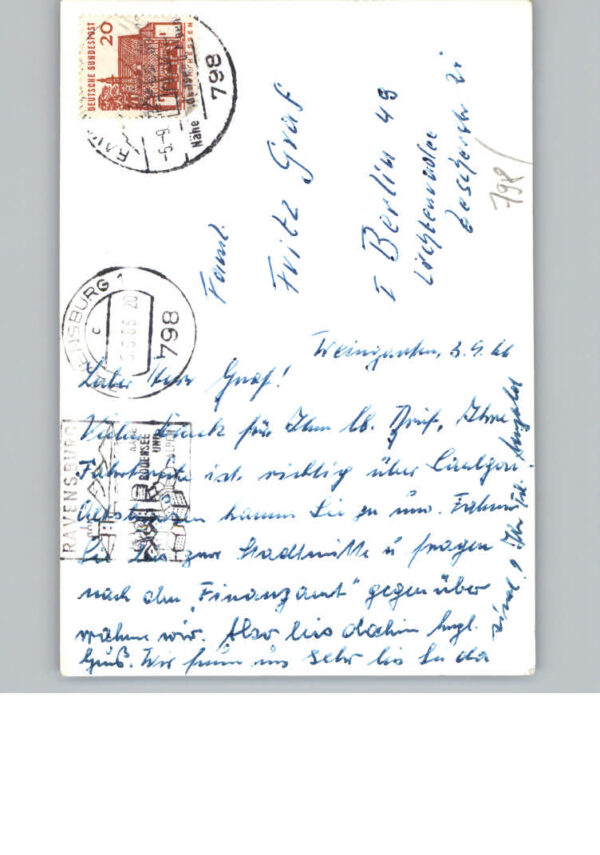 DEUTSCHE BUNDESPOST
20
798
Nähe
RAVENSBURG 1
c
798
RAVENSBURG
BODENSEE
UND
Faml.
Fritz Graf
1 Berlin 49
Lichtenrade
798
Weingarten, 3.9.66
Lieber Herr Graf!
Vielen Dank für Ihren lb. Brief, Ihre
Fahrtroute ist richtig über Saulgau-
Altshausen kommen Sie zu uns. Fahren
Sie bis zur Stadtmitte u fragen
nach dem "Finanzamt" gegenüber
wohnen wir. Also bis dahin hrzl.
Gruß. Wir freuen uns sehr bis Sie da
sind! Ihr Frl.